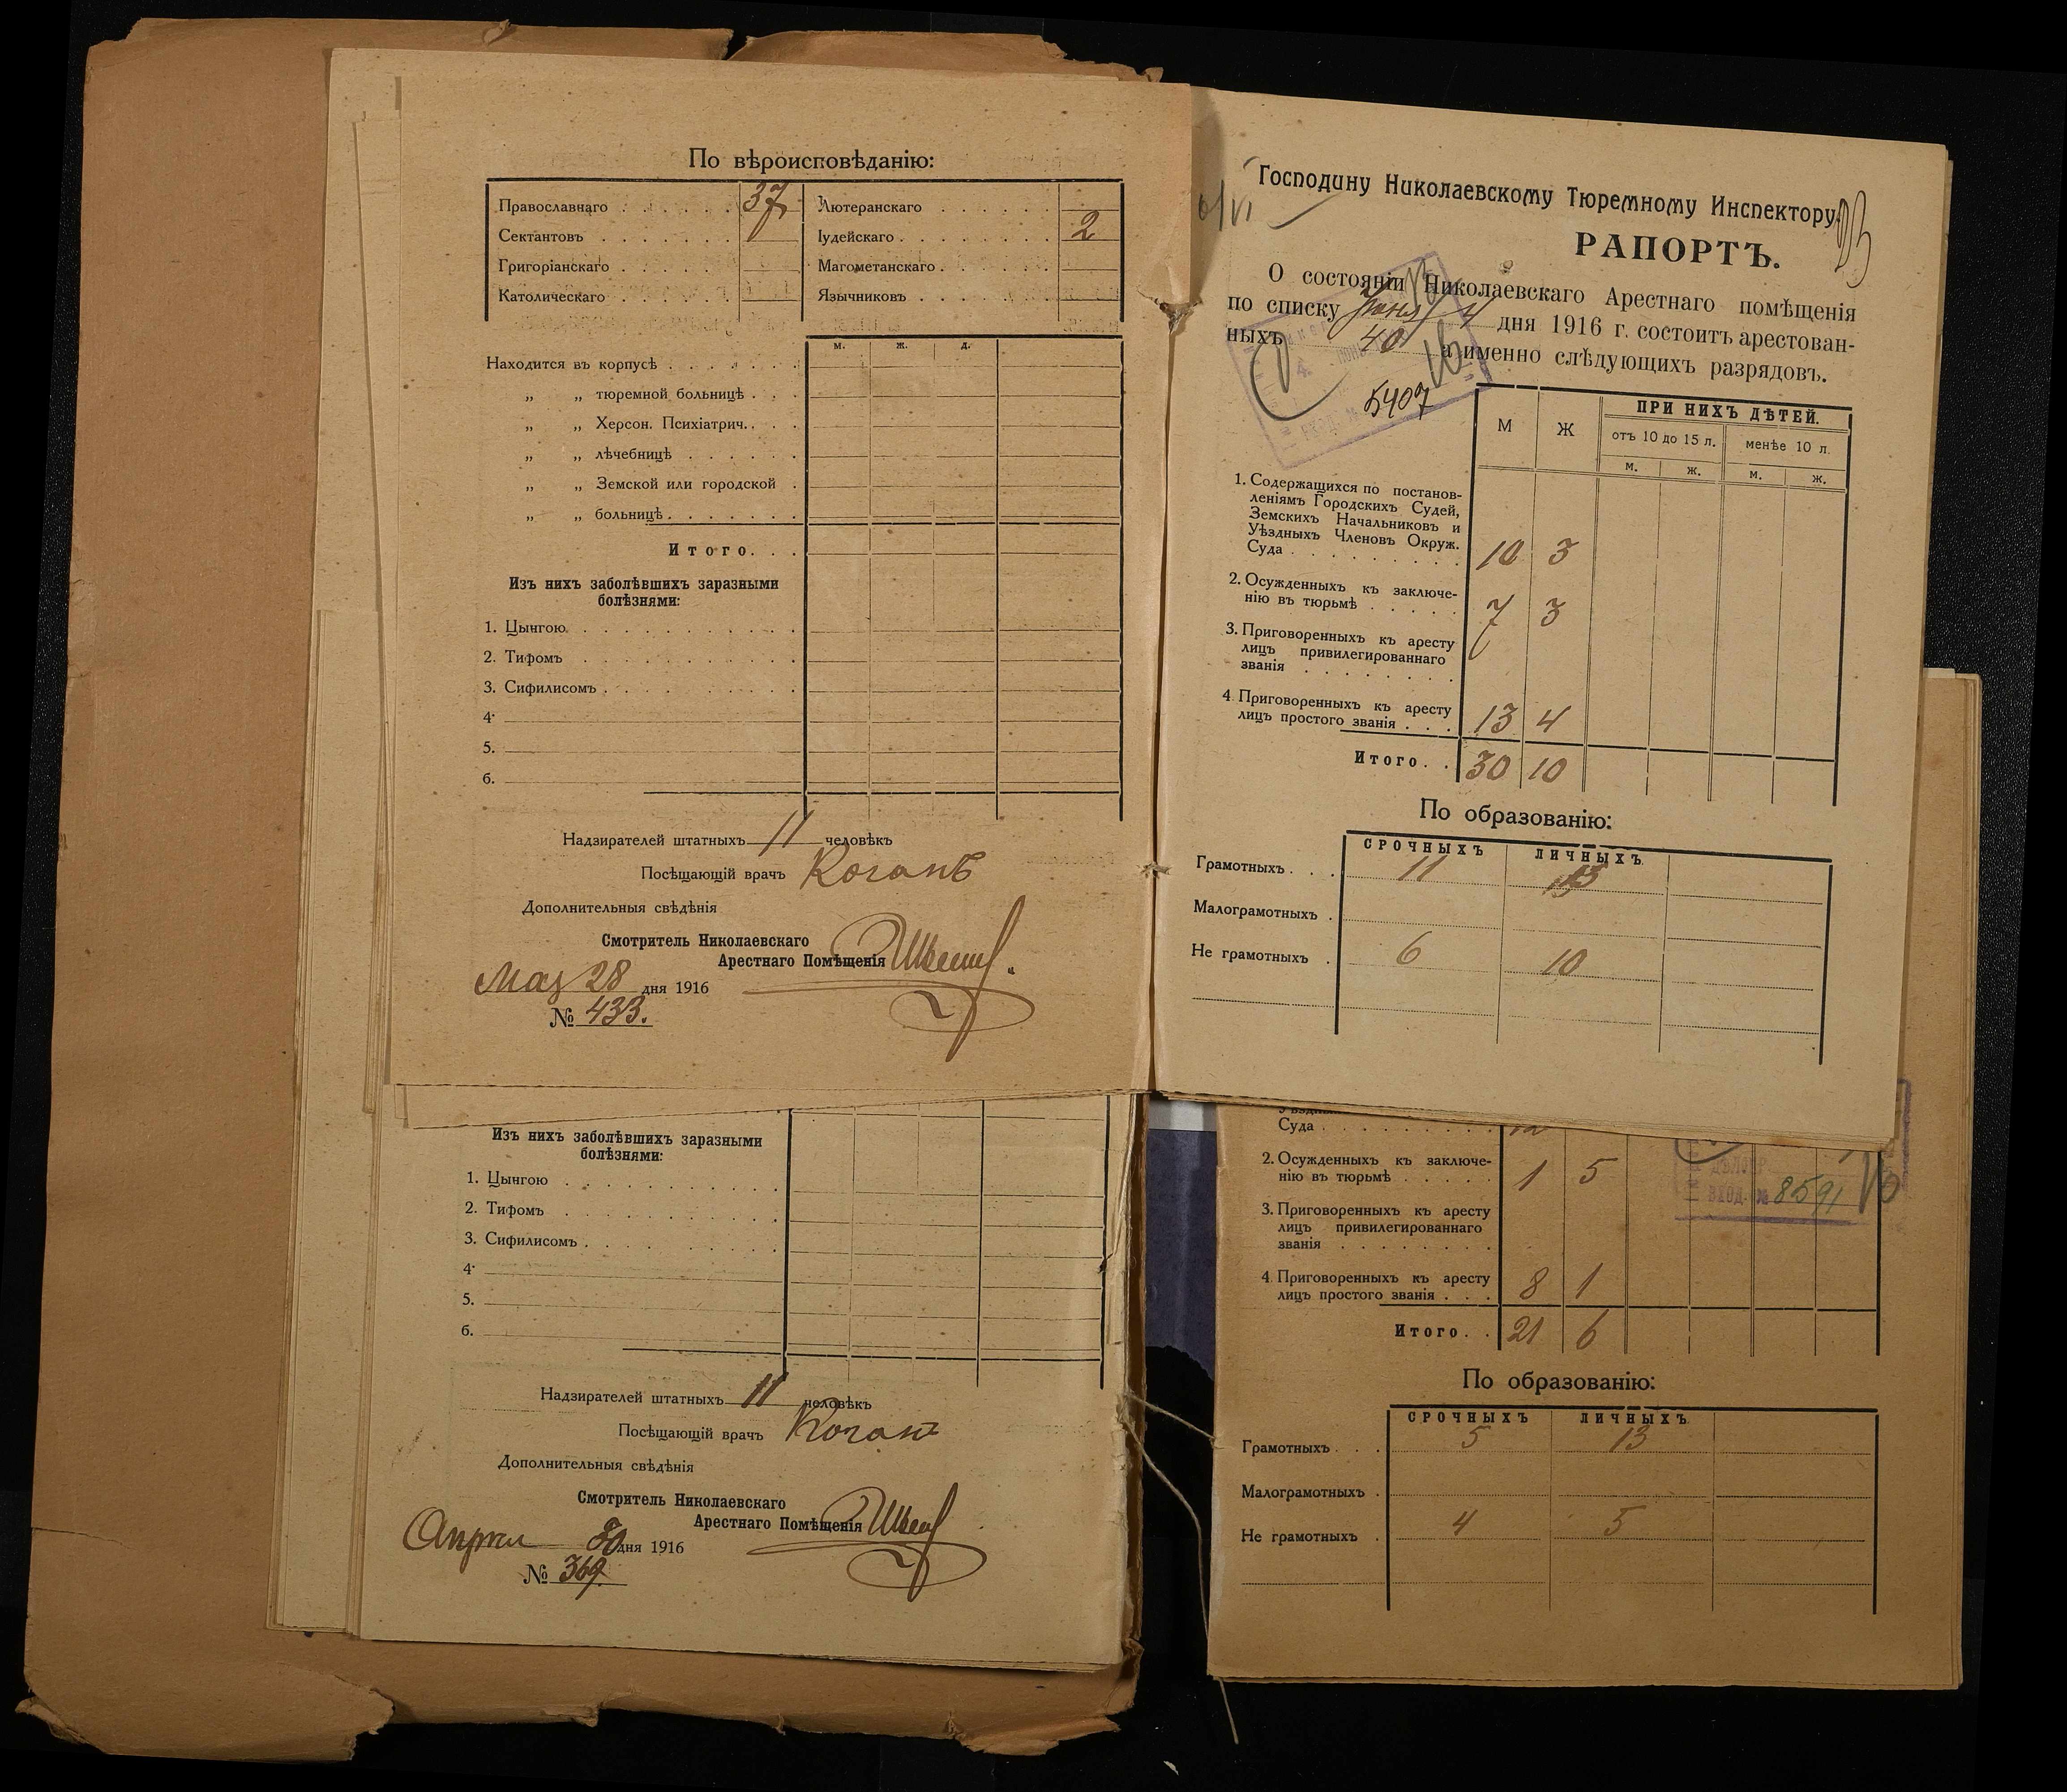 По вѣроисповѣданію:
Православнаго . . . . . . 37 Лютеранскаго . . . . . .
Сектантовъ . . . . . . . Іудейскаго . . . . . . . . 2
Григоріанскаго . . . . . Магометанскаго . . . . .
Католическаго . . . . . Язычниковъ . . . . . . .
м. ж. д.
Находится въ корпусѣ . . . . . . .
„ „ тюремной больницѣ . . .
„ „ Херсон. Психіатрич. . . .
„ „ лѣчебницѣ . . . . . .
„ „ Земской или городской .
„ „ больницѣ . . . . . . .
Итого. . .
Изъ нихъ заболѣвшихъ заразными
болѣзнями:
1. Цынгою. . . . . . . . . . . .
2. Тифомъ . . . . . . . . . . .
3. Сифилисомъ . . . . . . . . .
4.
5.
6.
Надзирателей штатныхъ 11 человѣкъ
Посѣщающій врачъ Коганъ
Дополнительныя свѣдѣнія
Смотритель Николаевскаго
Арестнаго Помѣщенія
Мая 28 дня 1916
№ 433.
Изъ нихъ заболѣвшихъ заразными
болѣзнями:
1. Цынгою . . . . . . . . . . .
2. Тифомъ . . . . . . . . . . .
3. Сифилисомъ . . . . . . . . .
4.
5.
6.
Надзирателей штатныхъ 11 человѣкъ
Посѣщающій врачъ Коганъ
Дополнительныя свѣдѣнія
Смотритель Николаевскаго
Арестнаго Помѣщенія
Апрѣл 30 дня 1916
№ 369.
Господину Николаевскому Тюремному Инспектору.
РАПОРТЪ.
О состояніи Николаевскаго Арестнаго помѣщенія
по списку Іюня 4 дня 1916 г. состоитъ арестован-
ныхъ 40 а именно слѣдующихъ разрядовъ.
5407
М Ж ПРИ НИХЪ ДѢТЕЙ.
отъ 10 до 15 л. менѣе 10 л.
м. ж. м. ж.
1. Содержащихся по постанов-
леніямъ Городскихъ Судей,
Земскихъ Начальниковъ и
Уѣздныхъ Членовъ Окруж.
Суда . . . . . . . . 10 3
2. Осужденныхъ къ заключе-
нію въ тюрьмѣ . . . . . 7 3
3. Приговоренныхъ къ аресту
лицъ привилегированнаго
званія . . . . . . . .
4. Приговоренныхъ къ аресту
лицъ простого званія . . . 13 4
Итого. . 30 10
По образованію:
СРОЧНЫХЪ ЛИЧНЫХЪ
Грамотныхъ . . . 11 13
Малограмотныхъ .
Не грамотныхъ . 6 10
Суда . . . . . . . . 12
2. Осужденныхъ къ заключе-
нію въ тюрьмѣ . . . . . 1 5
3. Приговоренныхъ къ аресту
лицъ привилегированнаго
званія . . . . . . . .
4. Приговоренныхъ къ аресту
лицъ простого званія . . . 8 1
ВХОД. № 8591
Итого. . 21 6
По образованію:
СРОЧНЫХЪ ЛИЧНЫХЪ
Грамотныхъ . . . 5 13
Малограмотныхъ .
Не грамотныхъ . 4 5